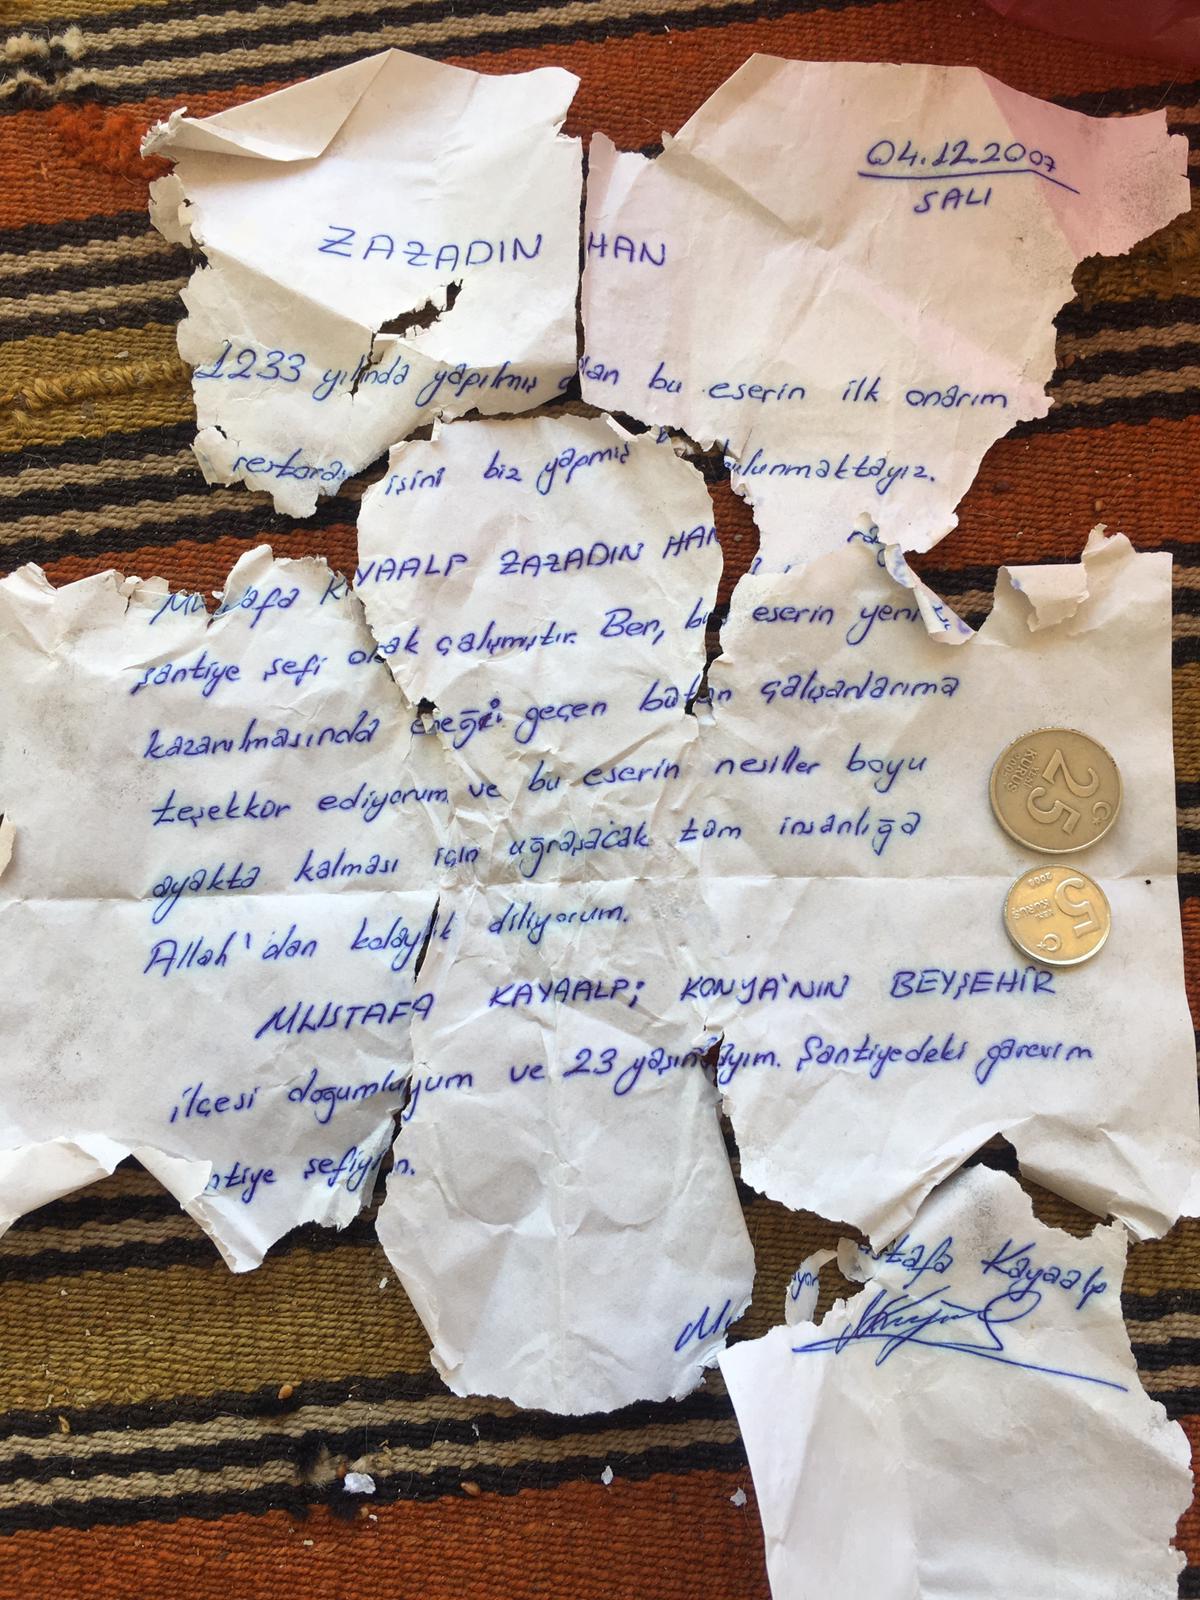 04.12.2007
SALI
ZAZADIN HAN
1233 yılında yapılmış olan bu eserin ilk onarım
restoras işini biz yapmış bulunmaktayız.
Mustafa KAYAALP ZAZADIN HAN
şantiye şefi olarak çalışmıştır. Ben, bu eserin yeni
kazanılmasında emeği geçen bütün çalışanlarıma
teşekkür ediyorum ve bu eserin nesiller boyu
ayakta kalması için uğraşacak tüm insanlığa
Allah'dan kolaylık diliyorum.
MUSTAFA KAYAALP; KONYA'NIN BEYŞEHİR
ilçesi doğumluyum ve 23 yaşındayım. Şantiyedeki görevim
şantiye şefiyim.
Mustafa Kayaalp
25
YENİ
KURUŞ
5
YENİ
KURUŞ
2004